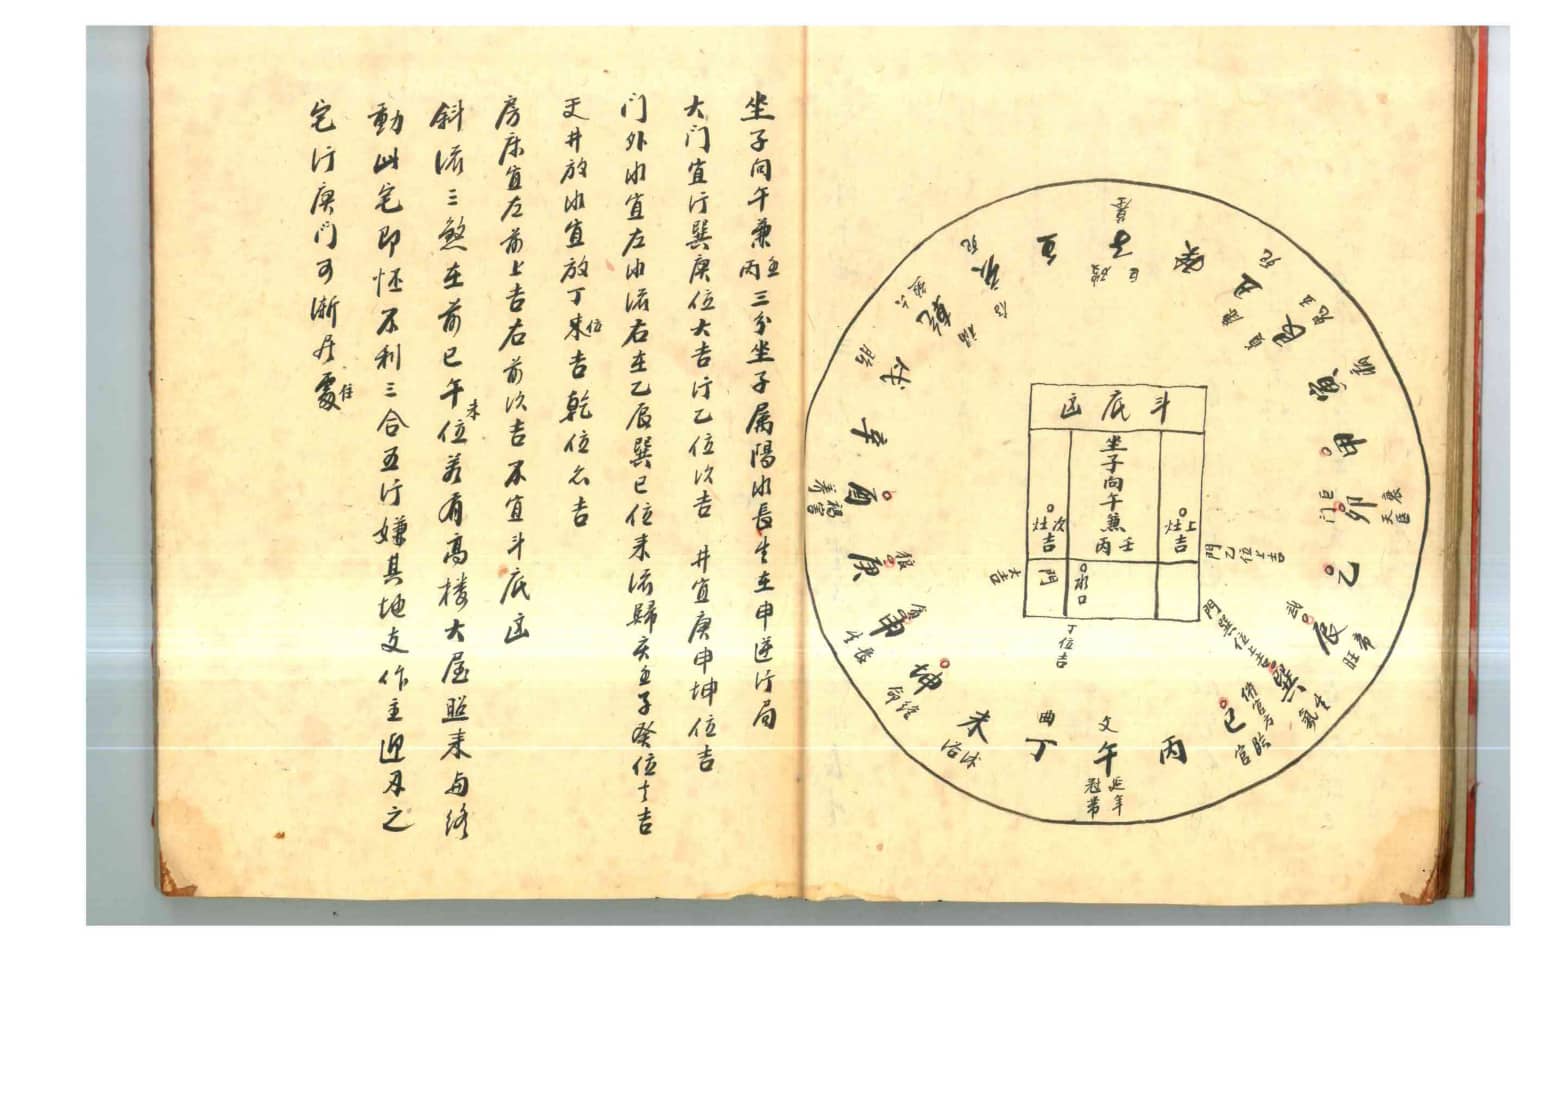 斗底凶
坐子向午兼
壬丙
上吉灶
次吉灶
門
水口
大吉
丁位吉
門乙位上吉
門巽位上吉
子
癸
丑
艮
寅
甲
卯
乙
辰
巽
巳
丙
午
丁
未
坤
申
庚
酉
辛
戌
乾
亥
壬
巨门
天医
武
生氣
文
延年
冠帶
曲
沐浴
長生
福
胎
坐子向午兼壬丙三分坐子属陽水長生在申逆行局
大门宜行巽庚位大吉行乙位次吉 井宜庚申坤位吉
门外水宜左水流右在乙辰巽巳位来流歸亥壬子癸位十吉
天井放水宜放丁未位吉乾位亦吉
房床宜左前上吉右前次吉不宜斗底凶
斜流三煞在前巳午未位若有高楼大屋照来与修
動此宅即怪不利三合五行嫌其地支作主迎丑之
宅行庚门可漸居住